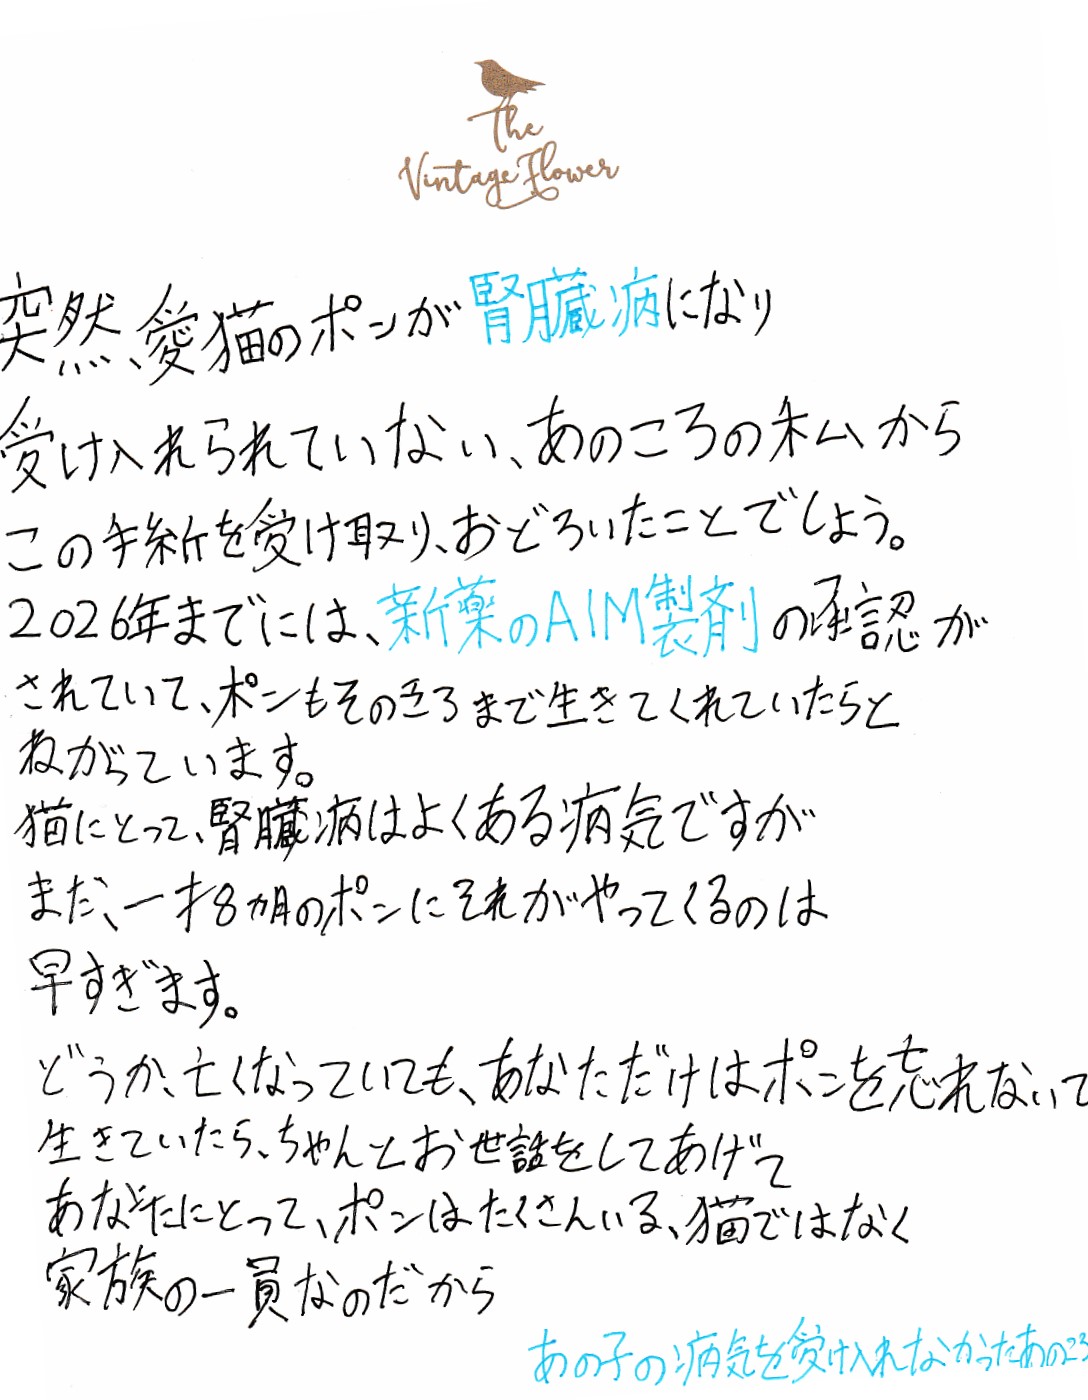 The
Vintage Flower
突然、愛猫のポンが腎臓病になり
受け入れられていない、あのころの私から
この手紙を受け取り、おどろいたことでしょう。
2026年までには、新薬のAIM製剤の承認が
されていて、ポンもそのころまで生きてくれていたらと
ねがっています。
猫にとって、腎臓病はよくある病気ですが
まだ、一才8カ月のポンにそれがやってくるのは
早すぎます。
どうか、亡くなっていても、あなただけはポンを忘れないで
生きていたら、ちゃんとお世話をしてあげて
あなたにとって、ポンはたくさんいる、猫ではなく
家族の一員なのだから
あの子の病気を受け入れなかったあのころ